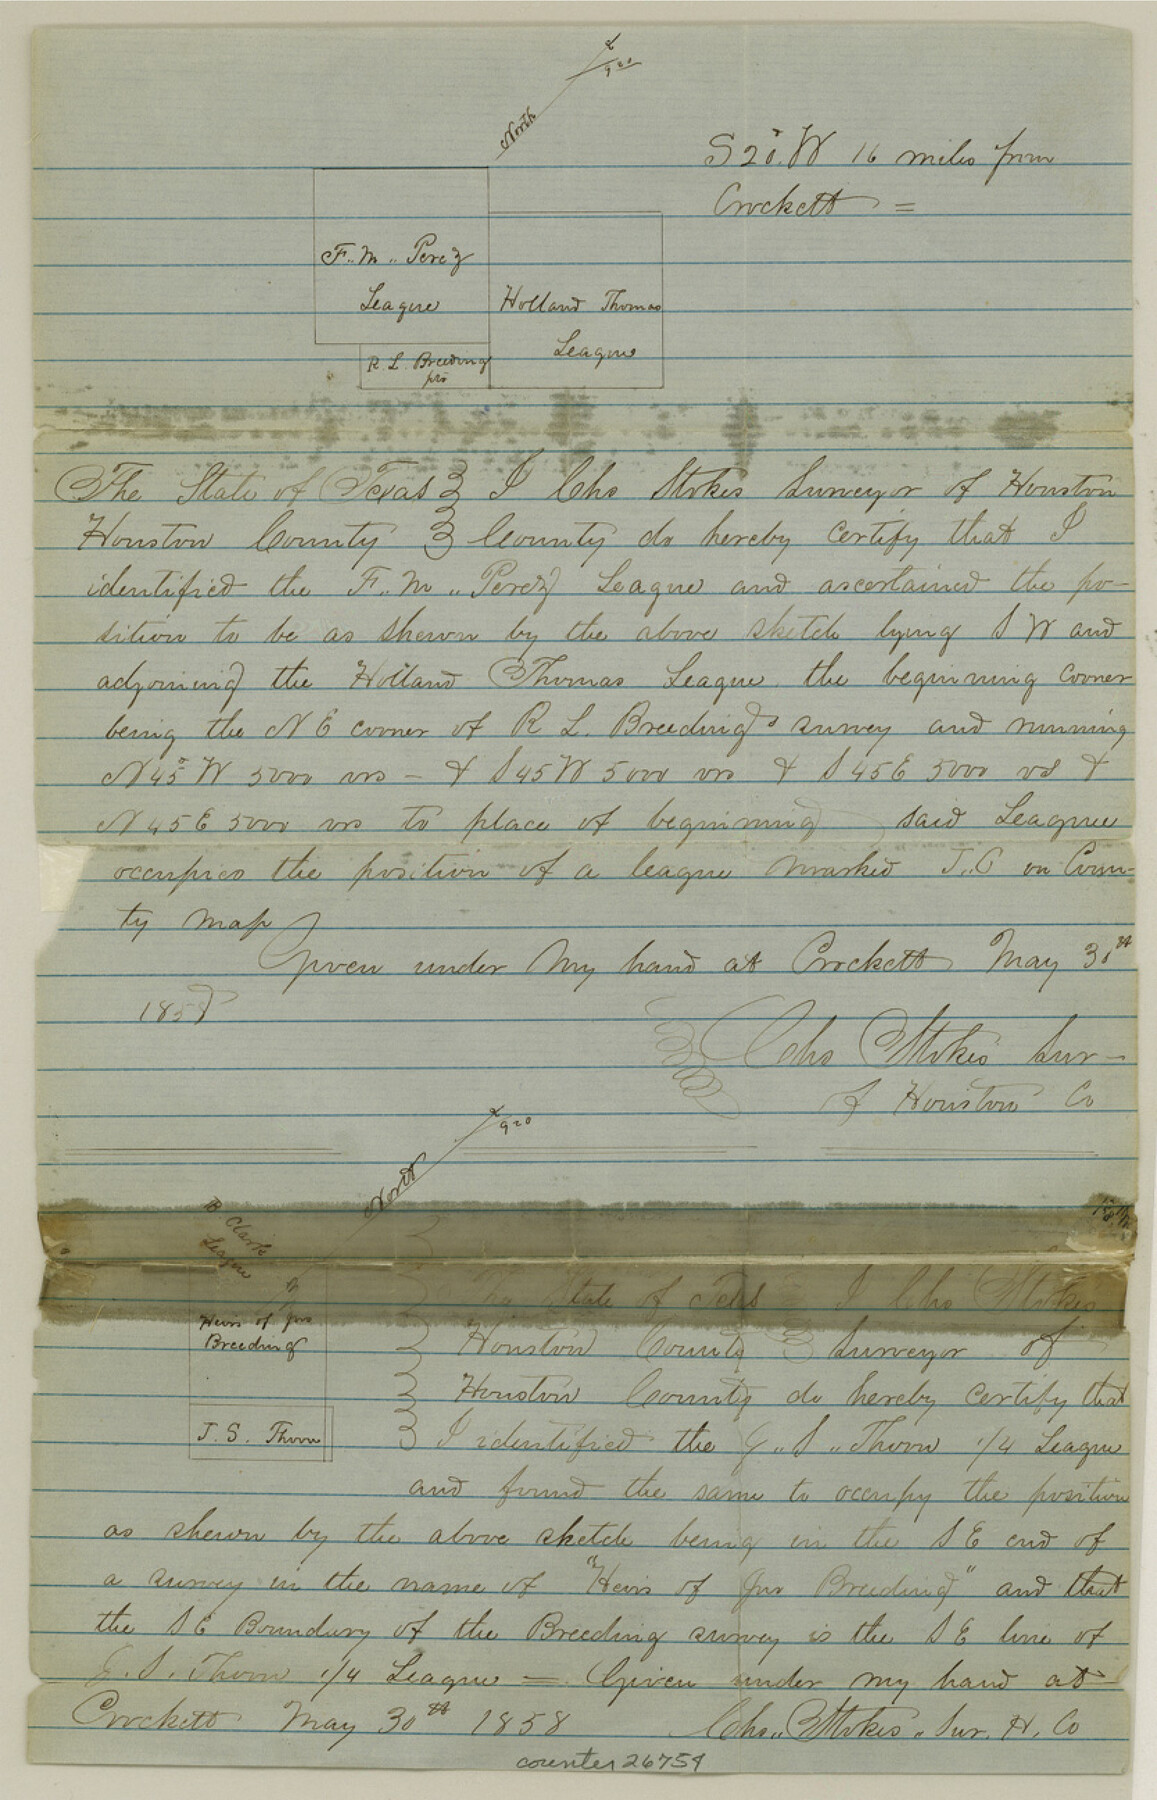 North
9°20'
S 20° W 16 miles from
Crockett =
F. M. Perez
League
Holland Thomas
League
R. L. Breeding
pre
The State of Texas } I Chs Stokes Surveyor of Houston
Houston County } County do hereby certify that I
identified the F. M. Perez League and ascertained the po-
sition to be as shewn by the above sketch lying S W and
adjoining the Holland Thomas League. the beginning corner
being the N E corner of R L. Breeding's survey and running
N 45° W 5000 vrs - & S 45 W 5000 vrs & S 45 E 5000 vs &
N 45 E 5000 vrs to place of beginning said League
occupies the position of a league marked J. C on Coun-
ty map
Given under my hand at Crockett May 30th
1858
Chs Stokes Sur-
of Houston Co
North
9-20
B Clark
League
Heirs of Jno
Breeding
J. S. Thorn
The State of Texas } I Chs Stokes
Houston County } Surveyor of
Houston County do hereby certify that
I identified the J. S. Thorn 1/4 League
and found the same to occupy the position
as shewn by the above sketch being in the S E end of
a survey in the name of "Heirs of Jno Breeding" and that
the S E Boundury of the Breeding survey is the S E line of
J. S. Thorn 1/4 League = Given under my hand at
Crockett May 30th 1858 Chs. Stokes. Sur. H. Co
counter 26754